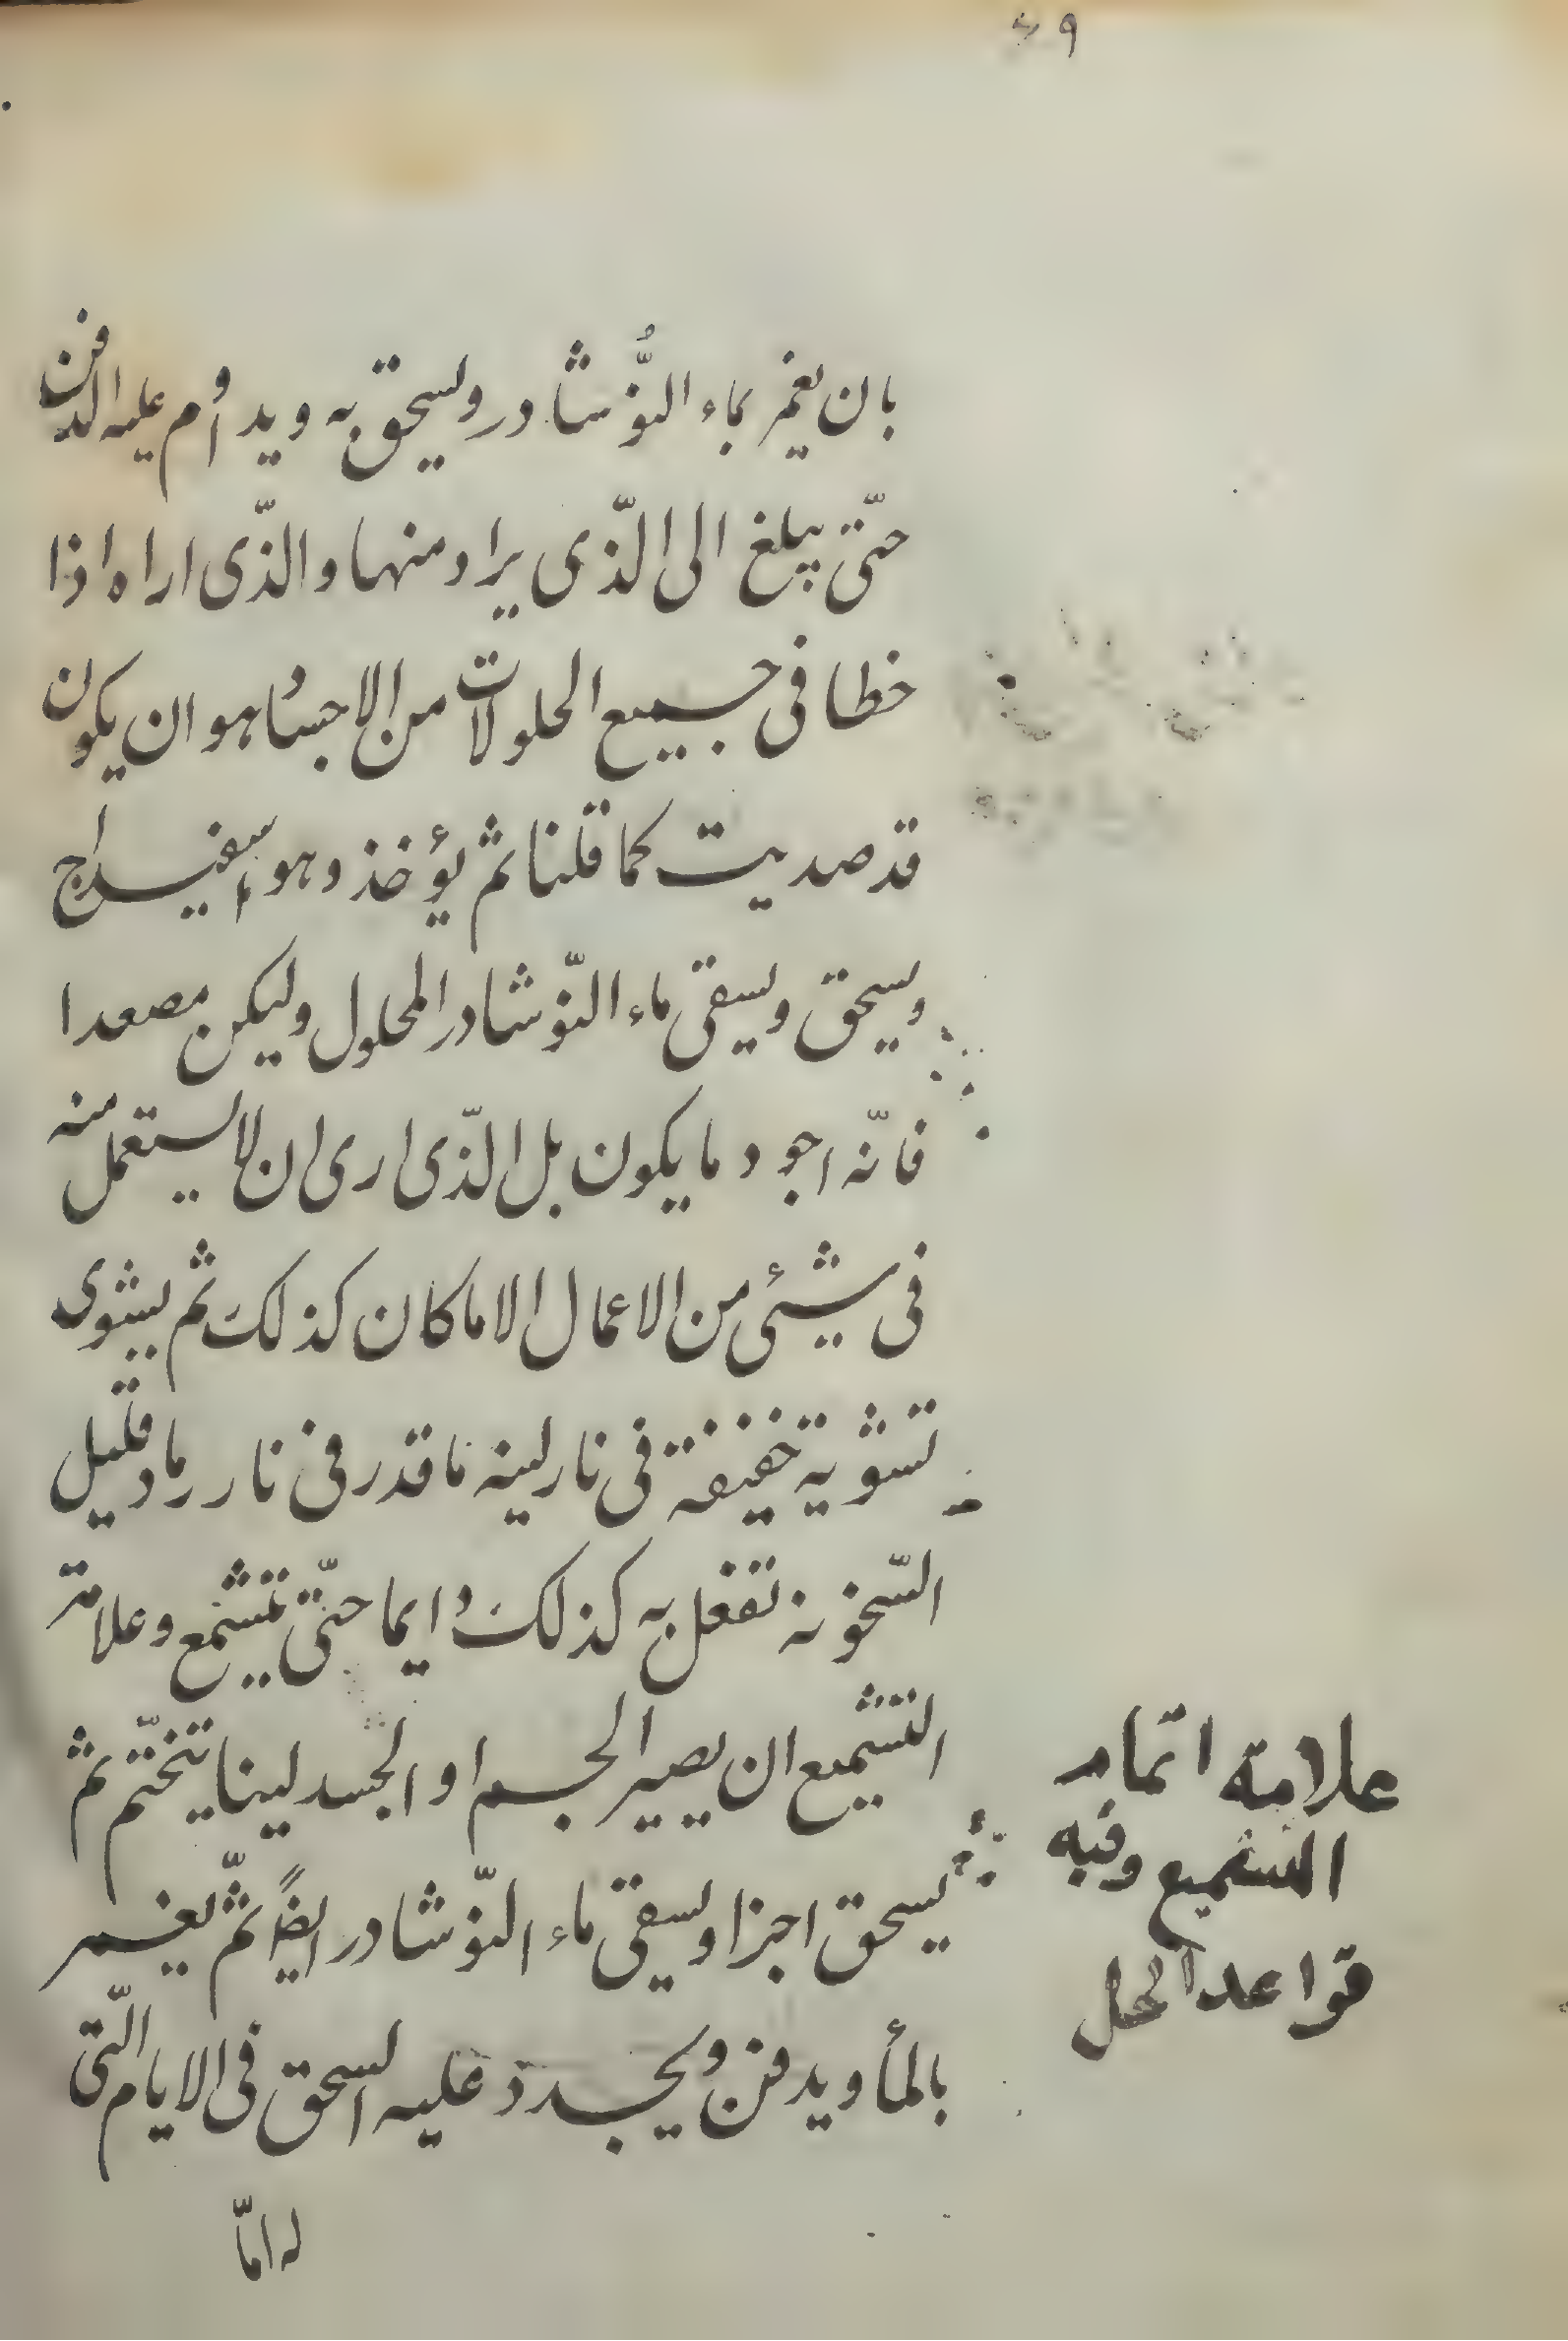 بان يغمر بماء النُّوشادر ويسحق به ويداوم عليه الدفن
حتّى يبلغ الى الّذى يراد منها والذّى اراه اذا
خطا فى جميع الحلولات من الاجساد هو ان يكون
قد صديت كما قلنا ثم يؤخذ وهو اسفيداج
ويسحق ويسقى ماء النّوشادر المحلول وليكن مصعدا
فانّه اجود ما يكون بل الذّى ارى ان لا يستعمل منه
فى شيئى من الاعمال الا ما كان كذلك ثم يشوى
تشوية خفيفة فى نار لينه ما قدر فى نار رماد قليل
السّخونه تفعل به كذلك دايما حتّى يتشمع وعلامة
التشميع ان يصير الجسم او الجسد لينا يتختّم ثم
يسحق اجزا ويسقى ماء النّوشادر ايضاً ثمّ يغمر
بالمأ ويدفن ويجدد عليه السحق فى الايام الّتى
له امّا
علامة اتمام
التشميع وفيه
قواعد الحل